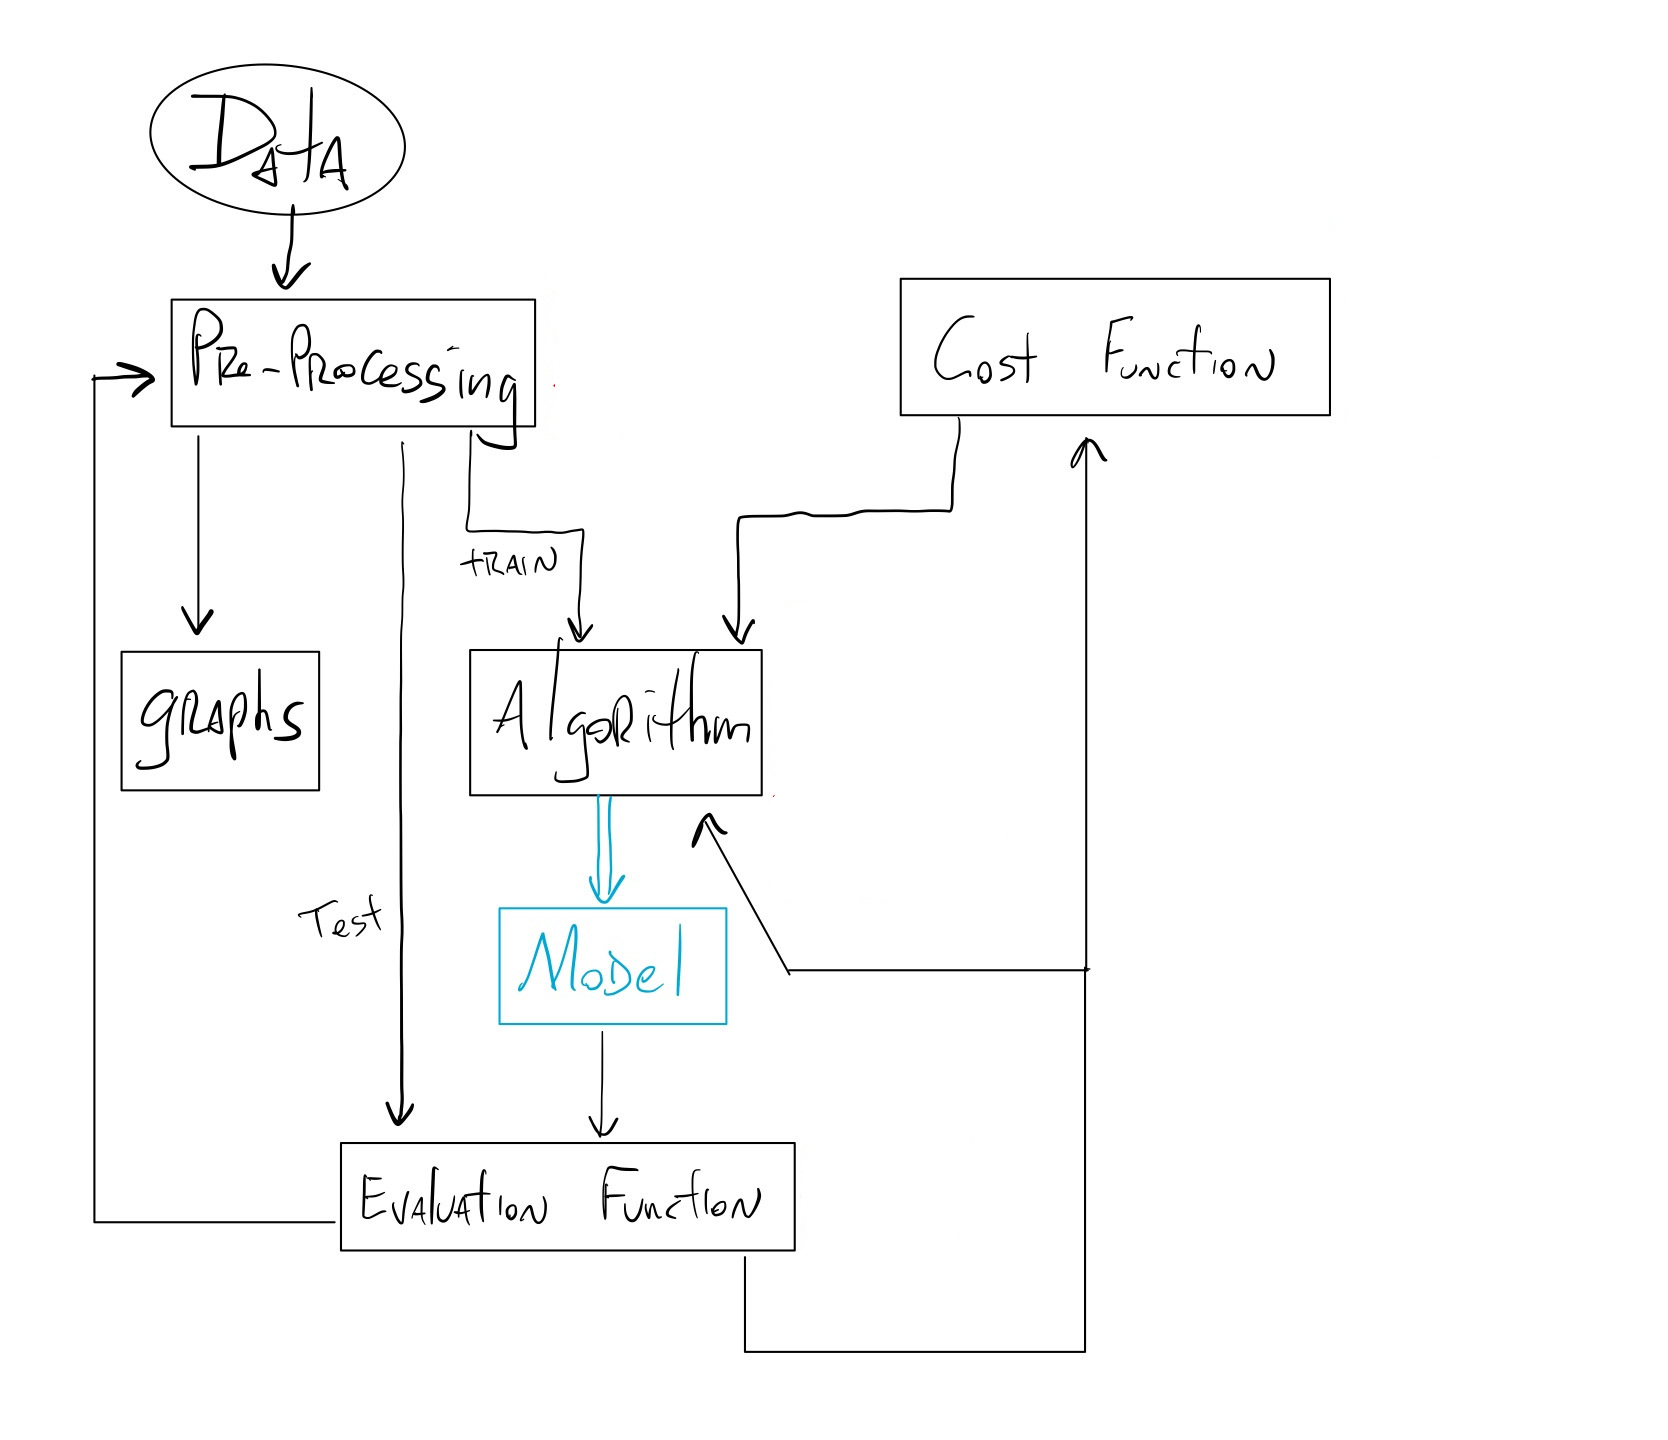 Data
Pre-Processing
Cost Function
train
graphs
Algorithm
Test
Model
Evaluation Function